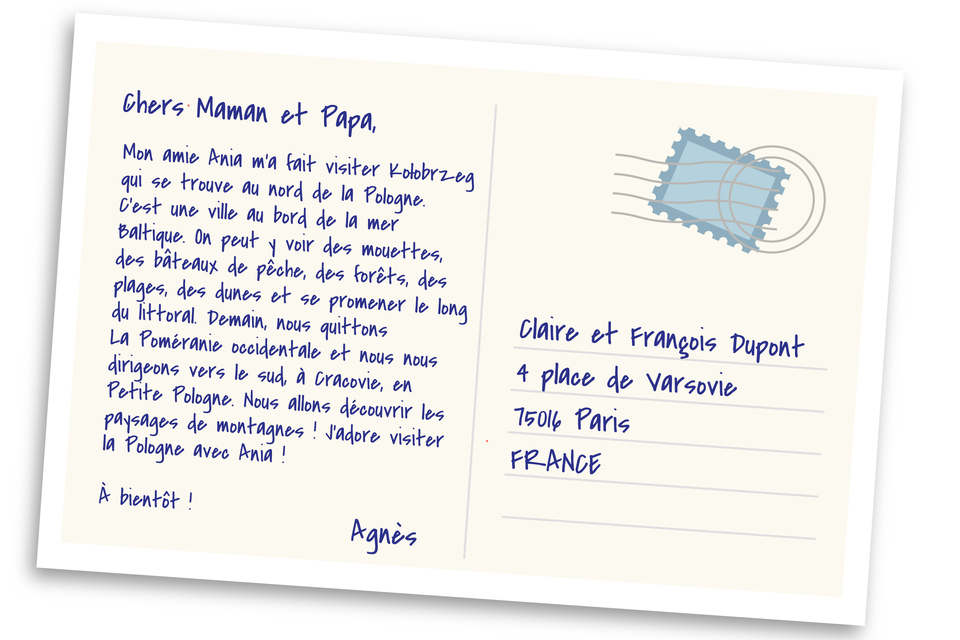 Chers Maman et Papa,
Mon amie Ania m'a fait visiter Kołobrzeg
qui se trouve au nord de la Pologne.
C'est une ville au bord de la mer
Baltique. On peut y voir des mouettes,
des bâteaux de pêche, des forêts, des
plages, des dunes et se promener le long
du littoral. Demain, nous quittons
La Poméranie occidentale et nous nous
dirigeons vers le sud, à Cracovie, en
Petite Pologne. Nous allons découvrir les
paysages de montagnes ! J'adore visiter
la Pologne avec Ania !
À bientôt !
Agnès
Claire et François Dupont
4 place de Varsovie
75016 Paris
FRANCE